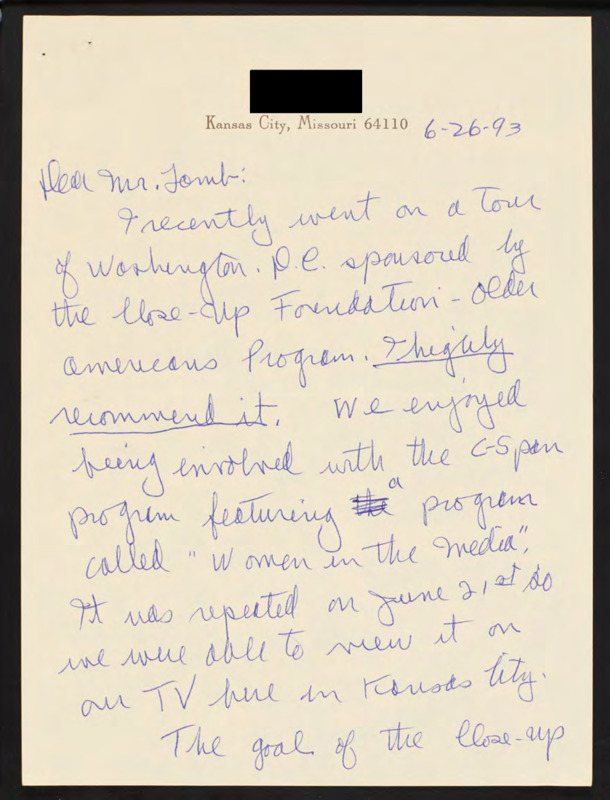 Kansas City, Missouri 64110
6-26-93
Dear Mr. Lamb:
I recently went on a Tour
of Washington. D.C. sponsored by
the Close-Up Foundation - Older
Americans Program. I highly
recommend it. We enjoyed
being involved with the C-Span
program featuring a program
called "Women in the Media".
It was repeated on June 21st so
we were able to view it on
our TV here in Kansas City.
The goal of the Close-up